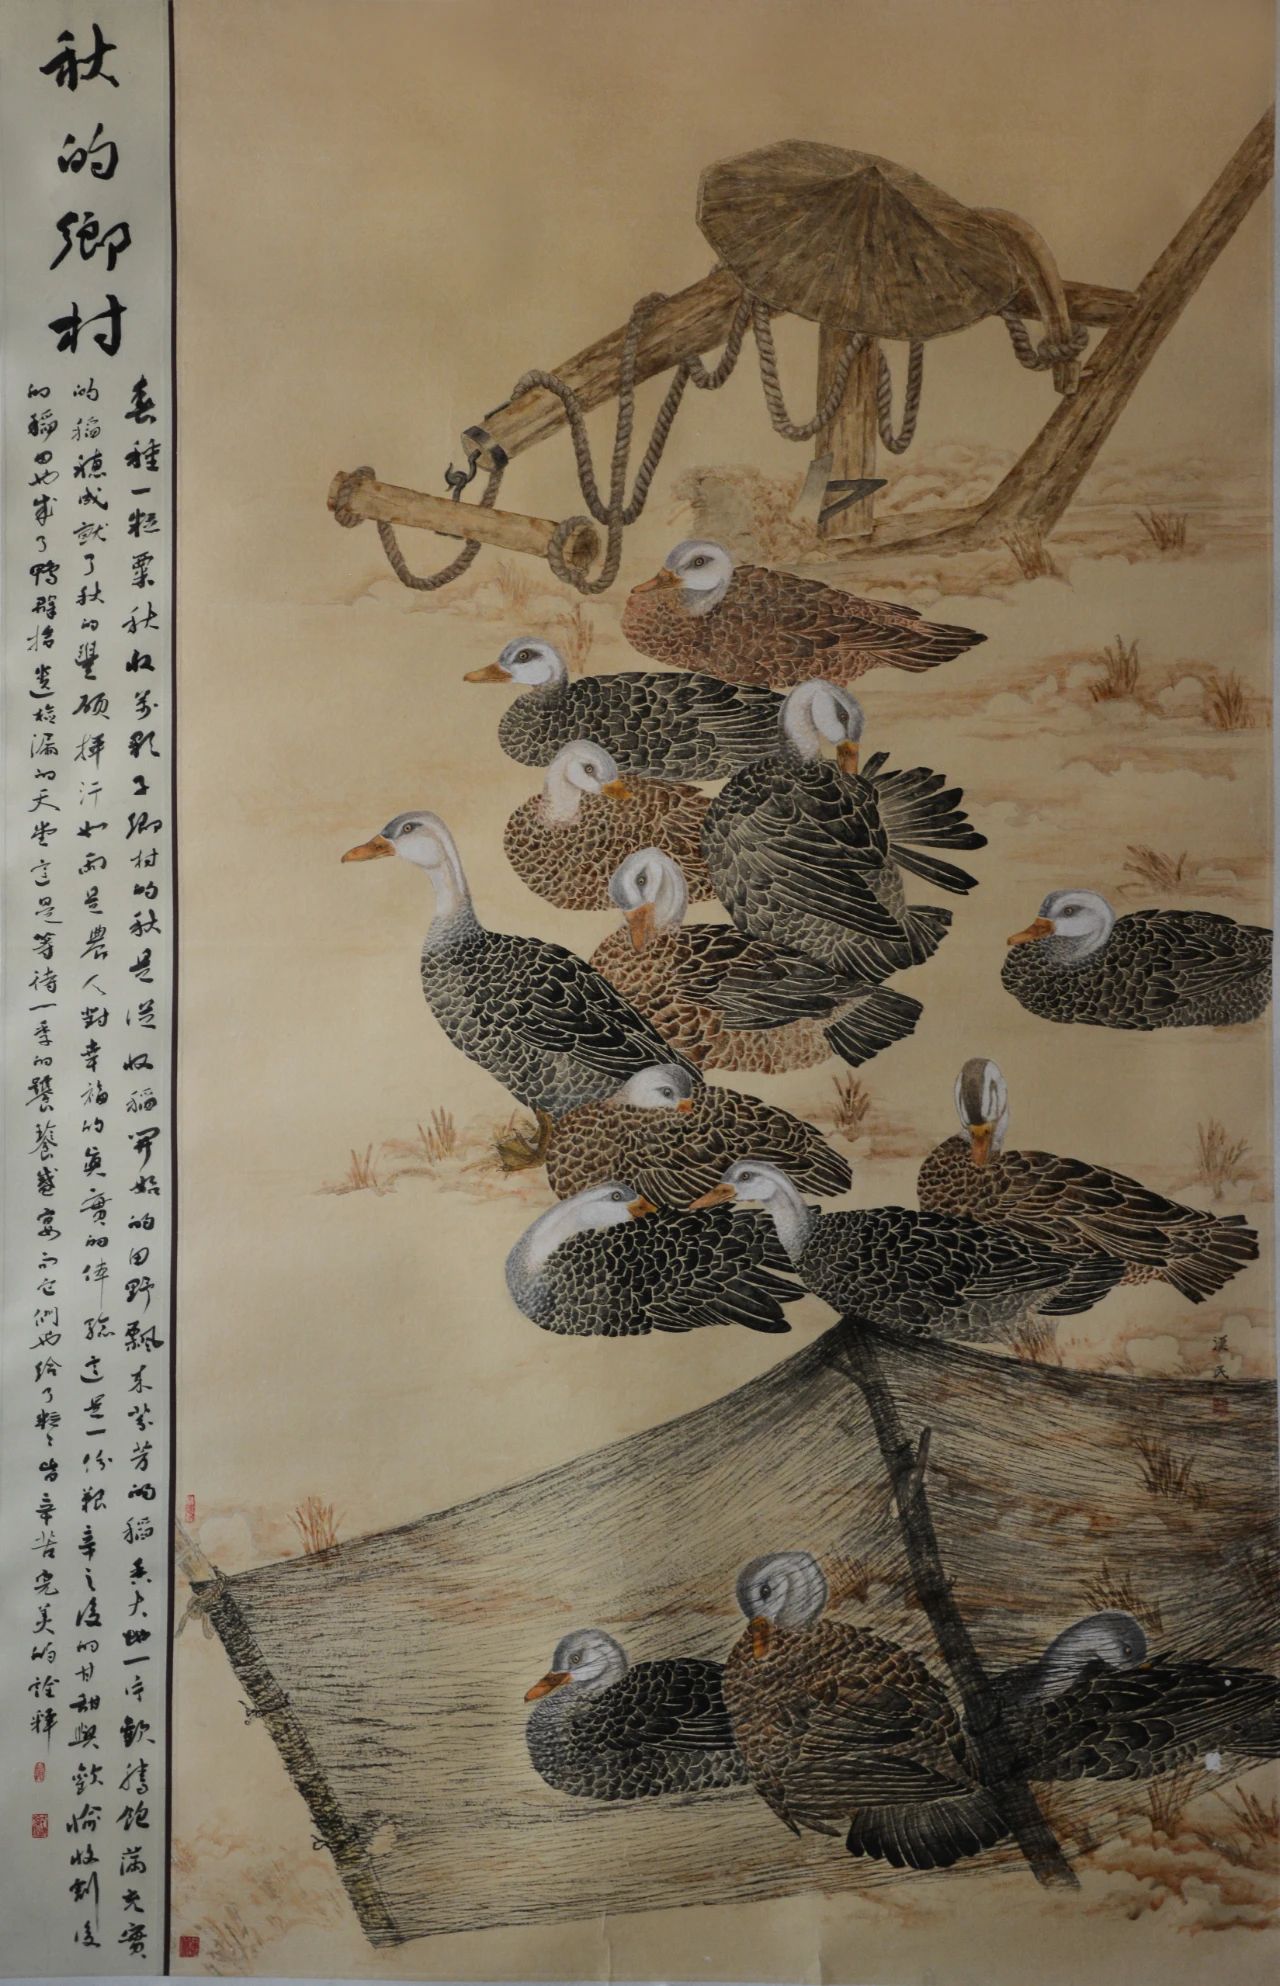 秋的鄉村
春種一粒粟秋收萬顆子鄉村的秋是從收稻開始的田野飄來芬芳的稻香大地一片歡騰飽滿充實
的稻穗成就了秋的豐碩揮汗如雨是農人對幸福的真實的体驗這是一份艱辛之後的甘甜與歡愉收割後
的稻田也成了鴨群拾遺撿漏的天堂這是等待一季的饕餮盛宴而它們也給了粒々皆辛苦完美的詮釋
漢民